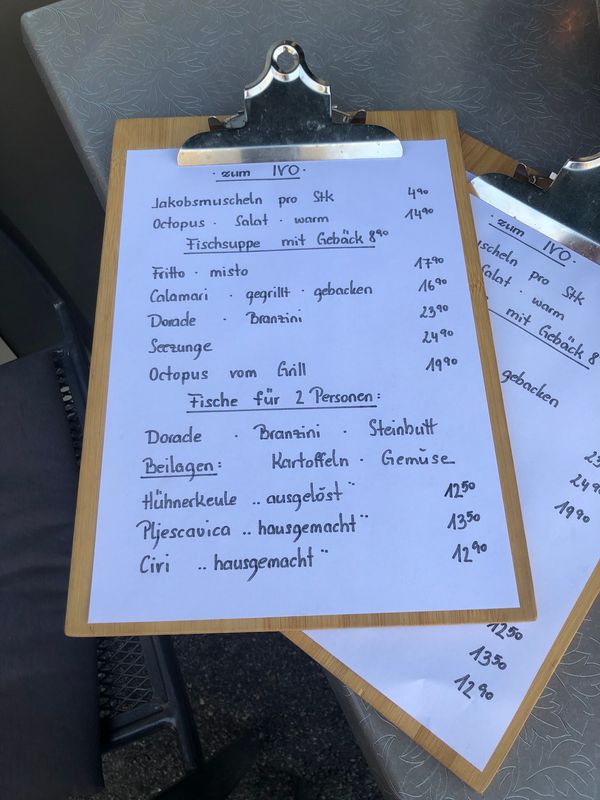 · zum IVO ·
Jakobsmuscheln pro Stk 4⁹⁰
Octopus · Salat · warm 14⁹⁰
Fischsuppe mit Gebäck 8⁹⁰
Fritto · misto 17⁹⁰
Calamari · gegrillt · gebacken 16⁹⁰
Dorade · Branzini 23⁹⁰
Seezunge 24⁹⁰
Octopus vom Grill 19⁹⁰
Fische für 2 Personen:
Dorade · Branzini · Steinbutt
Beilagen: Kartoffeln · Gemüse
Hühnerkeule „ausgelöst" 12⁵⁰
Pljescavica „hausgemacht" 13⁵⁰
Ciri „hausgemacht" 12⁹⁰
· zum IVO ·
uscheln pro Stk
Salat · warm
mit Gebäck 8
gebacken
23
24⁹⁰
19⁹⁰
12⁵⁰
13⁵⁰
12⁹⁰